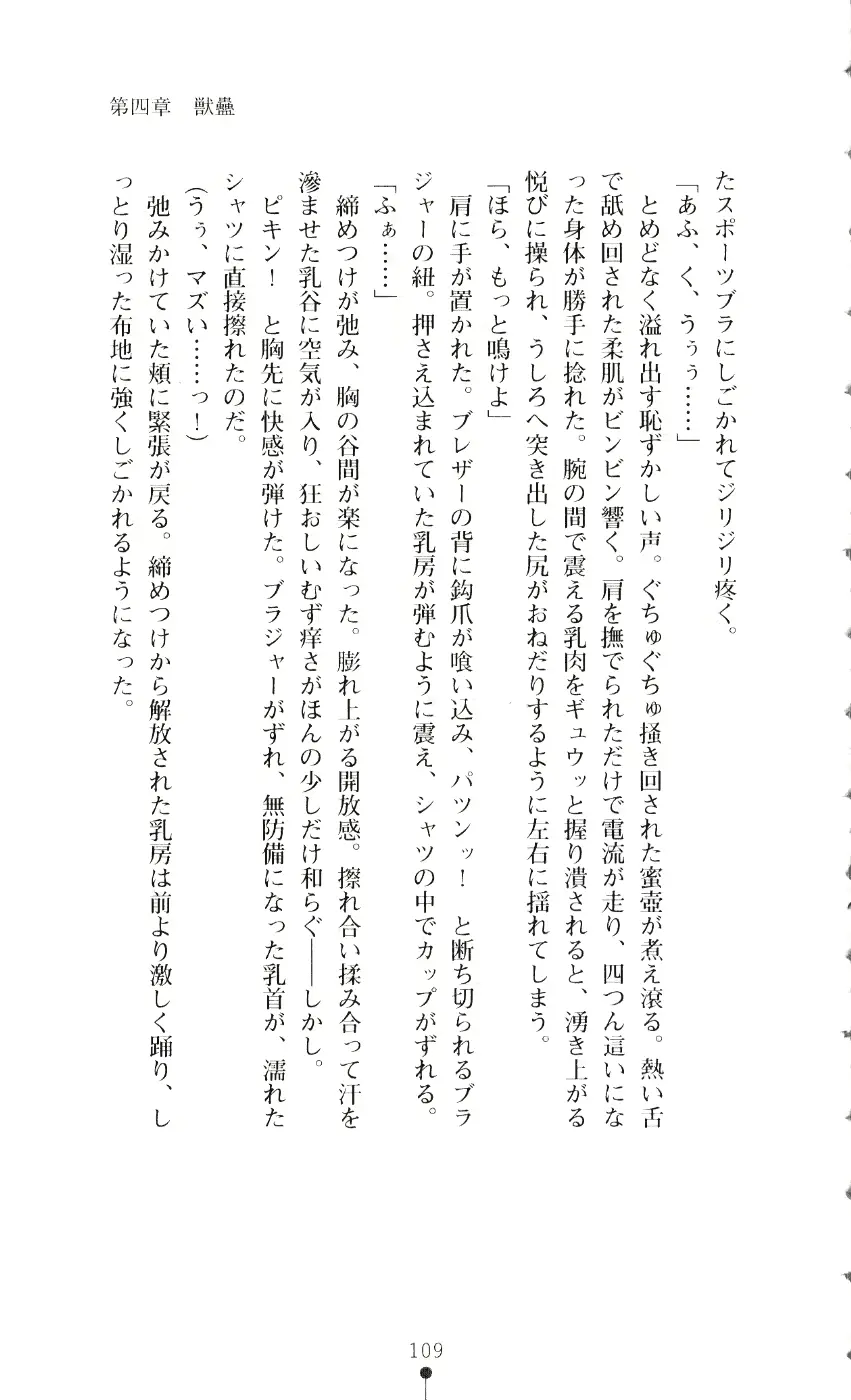 第四章　獣蠱
たスポーツブラにしごかれてジリジリ疼く。
「あふ、く、うぅぅ……」
とめどなく溢れ出す恥ずかしい声。ぐちゅぐちゅ掻き回された蜜壺が煮え滾る。熱い舌
で舐め回された柔肌がビンビン響く。肩を撫でられただけで電流が走り、四つん這いにな
った身体が勝手に捻れた。腕の間で震える乳肉をギュウッと握り潰されると、湧き上がる
悦びに操られ、うしろへ突き出した尻がおねだりするように左右に揺れてしまう。
「ほら、もっと鳴けよ」
肩に手が置かれた。ブレザーの背に鈎爪が喰い込み、パツンッ！　と断ち切られるブラ
ジャーの紐。押さえ込まれていた乳房が弾むように震え、シャツの中でカップがずれる。
「ふぁ……」
締めつけが弛み、胸の谷間が楽になった。膨れ上がる開放感。擦れ合い揉み合って汗を
滲ませた乳谷に空気が入り、狂おしいむず痒さがほんの少しだけ和らぐ――しかし。
ピキン！　と胸先に快感が弾けた。ブラジャーがずれ、無防備になった乳首が、濡れた
シャツに直接擦れたのだ。
（うぅ、マズい……っ！）
弛みかけていた頬に緊張が戻る。締めつけから解放された乳房は前より激しく踊り、し
っとり湿った布地に強くしごかれるようになった。
109